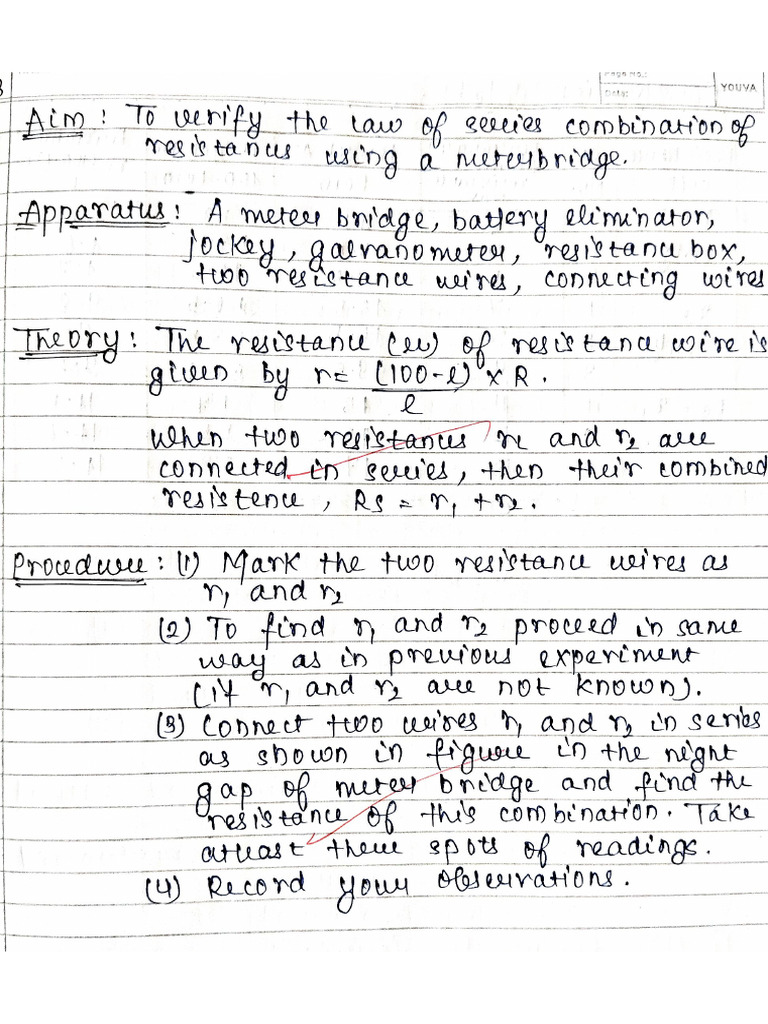 3
Page No.:
Date:
YOUVA
Aim : To verify the law of series combination of
resistances using a meter bridge.
Apparatus : A meter bridge, battery eliminator,
jockey, galvanometer, resistance box,
two resistance wires, connecting wires
Theory : The resistance (r) of resistance wire is
given by r = (100-l) x R.
l
When two resistances r1 and r2 are
connected in series, then their combined
resistence, Rs = r1 + r2.
Procedure : (1) Mark the two resistance wires as
r1 and r2
(2) To find r1 and r2 proceed in same
way as in previous experiment
(if r1 and r2 are not known).
(3) Connect two wires r1 and r2 in series
as shown in figure in the right
gap of meter bridge and find the
resistance of this combination. Take
atleast three spots of readings.
(4) Record your observations.